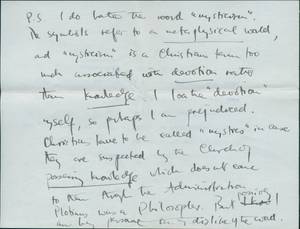 P.S I do hate the word "mysticism".
The symbols refer to a metaphysical world,
and "mysticism" is a Christian term too
much associated with devotion rather
than knowledge I loathe "devotion"
myself, so perhaps I am prejudiced.
Christians have to be called "mystics" in case
they are suspected by the Church of
possessing knowledge which doesn't come
to them through the Administration
Plotinus was a Philosopher. But
my dislike the word.